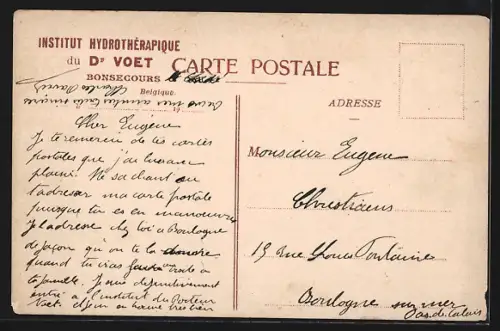 INSTITUT HYDROTHÉRAPIQUE
du Dr VOET
BONSECOURS
Belgique
CARTE POSTALE
ADRESSE
Cher Eugène
Je te remercie de tes cartes
postales que j'ai
plaisir. Ne sachant ou
t'adresser ma carte postale
puisque tu es en manoeuvre
je l'adresse chez toi a Boulogne
de façon qu'on te la donne
quand tu iras faire visite a
ta famille. Je suis définitivement
entré a l'institut du Docteur
Voet.
Monsieur Eugene
Christiaens
15 rue Fontaine
Boulogne sur mer
Pas de Calais